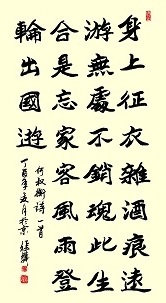 身上征衣雜酒痕遠
游無處不銷魂此生
合是忘家客風雨登
輪出國遊
何叔衡詩一首
丁酉年五月於京